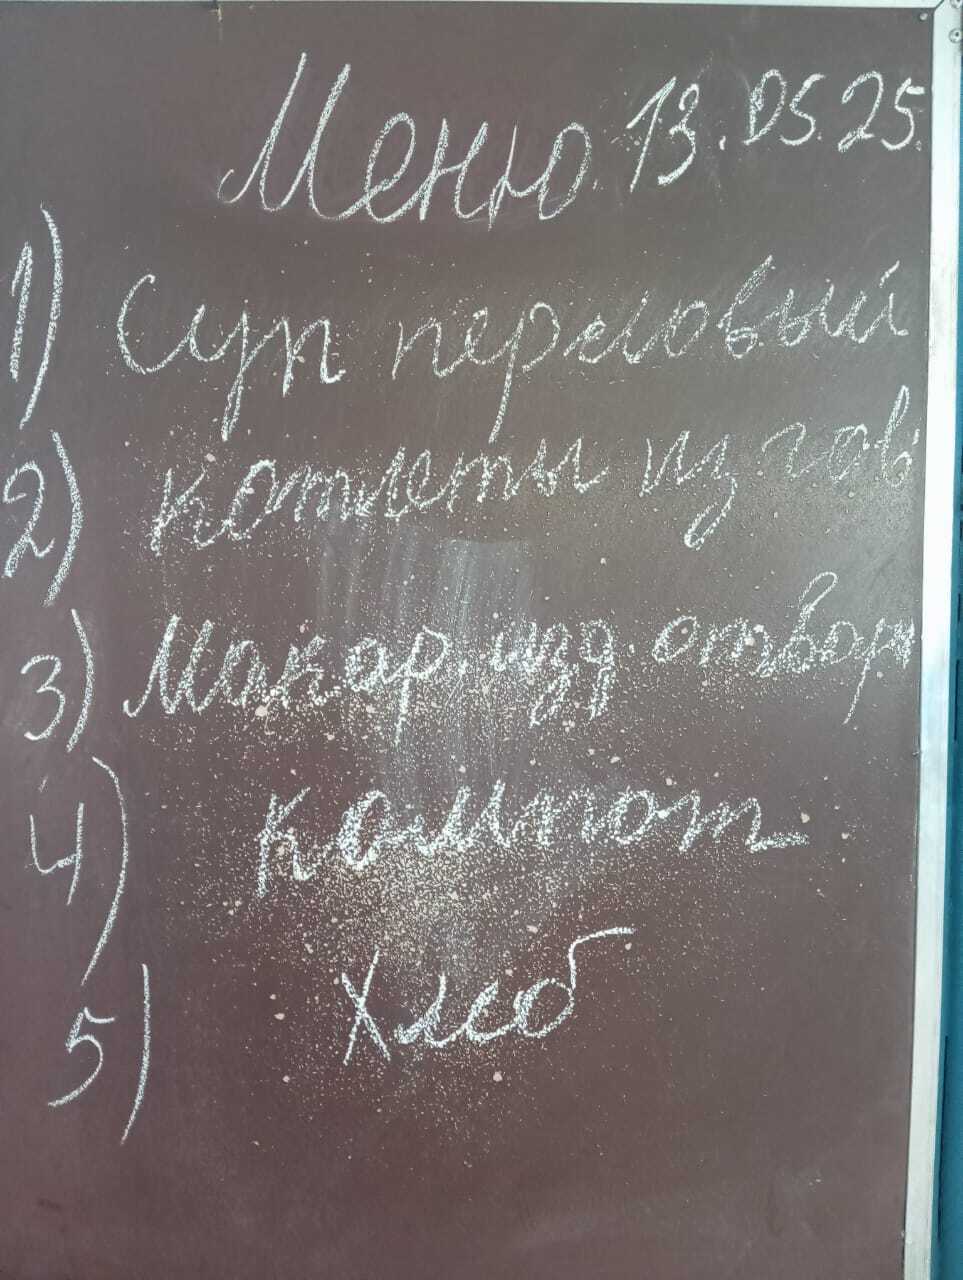 Меню 13.05.25.
1) Суп перловый
2) котлеты из гов
3) Макар. изд. отварн
4) компот
5) Хлеб